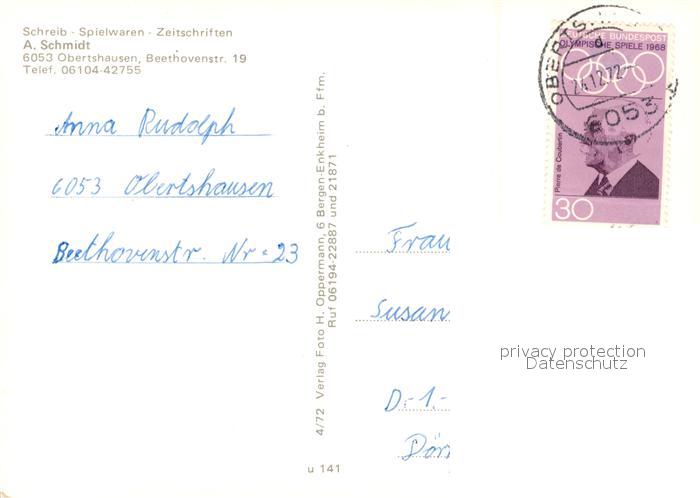 Schreib - Spielwaren - Zeitschriften
A. Schmidt
6053 Obertshausen, Beethovenstr. 19
Telef. 06104-42755
Anna Rudolph
6053 Obertshausen
Beethovenstr. Nr. 23
4/72 Verlag Foto H. Oppermann, 6 Bergen-Enkheim b. Ffm.
Ruf 06194-22887 und 21871
u 141
DEUTSCHE BUNDESPOST
OLYMPISCHE SPIELE 1968
Pierre de Coubertin
30
OBERTSH
24.12.72
6053
Frau
Susan
D.-1.-
privacy protection
Datenschutz